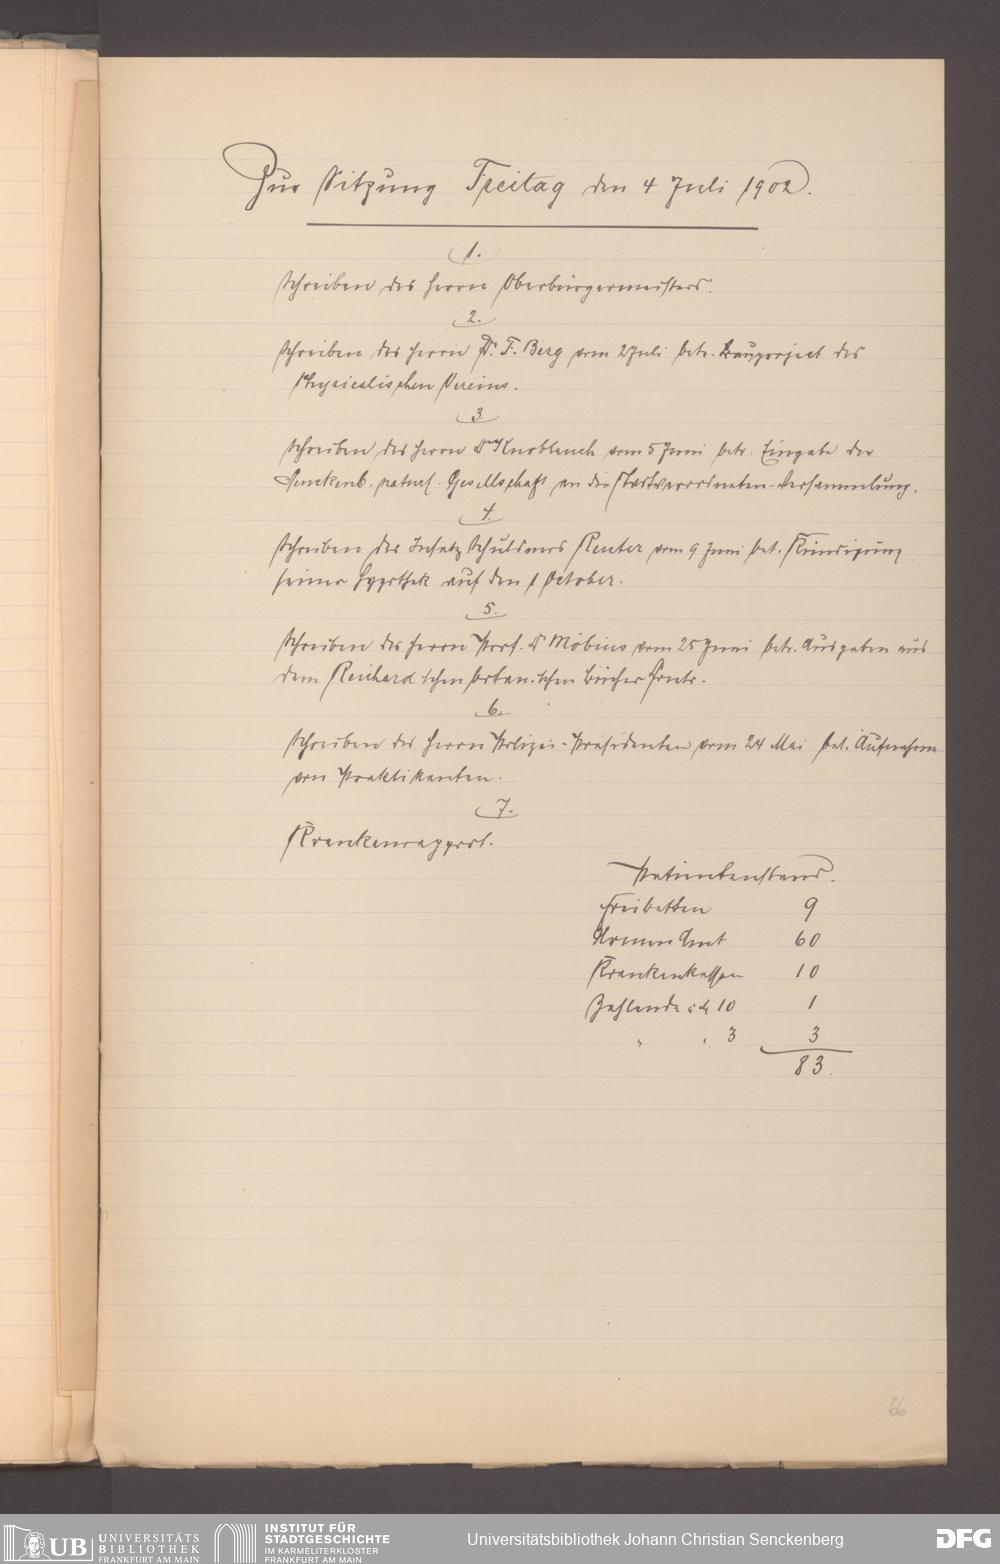 Zur Sitzung Freitag den 4 Juli 1902.
1.
Schreiben des Herrn Oberbürgermeisters.
2.
Schreiben des Herrn Dr. F. Berg vom 2 Juli betr. Bauproject des
Physicalischen Vereins.
3.
Schreiben des Herrn Dr Knoblauch vom 5 Juni betr. Eingabe der
Senckenb. naturf. Gesellschaft an die Stadtverordneten-Versammlung.
4.
Schreiben des Insatz Schuldners Reuter vom 9 Juni bet. Kündigung
seiner Hypothek auf den 1 October.
5.
Schreiben des Herrn Prof. Dr Möbius vom 25 Juni betr. Ausgaben aus
dem Reichard'schen botanischen Bücher
6.
Schreiben des Herrn Polizei-Präsidenten vom 24 Mai bet. Aufnahme
von Praktikanten.
7.
Krankenrapport.
Patientenstand.
Freibetten 9
Armen Amt 60
Krankenkassen 10
Zahlende 10 1
" " 3 3
83.
66
UB UNIVERSITÄTS
BIBLIOTHEK
FRANKFURT AM MAIN
INSTITUT FÜR
STADTGESCHICHTE
IM KARMELITERKLOSTER
FRANKFURT AM MAIN
Universitätsbibliothek Johann Christian Senckenberg
DFG